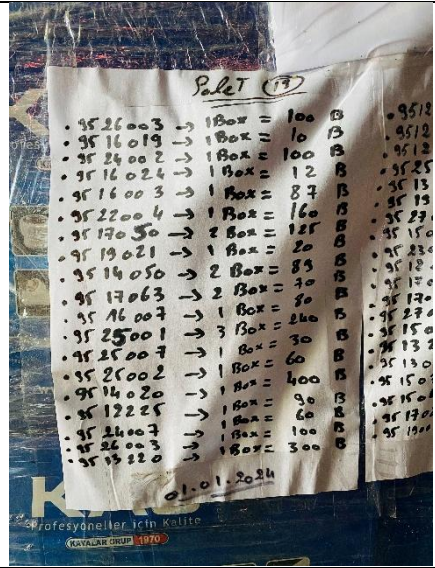 PaleT (19)
• 9526003 → 1 Box = 100 B
• 9516019 → 1 Box = 10 B
• 9524002 → 1 Box = 100 B
• 9516024 → 1 Box = 12 B
• 9516003 → 1 Box = 87 B
• 9522004 → 1 Box = 160 B
• 9517050 → 2 Box = 125 B
• 9519021 → 1 Box = 20 B
• 9514050 → 2 Box = 89 B
• 9517063 → 2 Box = 70 B
• 9516007 → 1 Box = 80 B
• 9525001 → 3 Box = 240 B
• 9525007 → 1 Box = 30 B
• 9525002 → 1 Box = 60 B
• 9514020 → 1 Box = 400 B
• 9512225 → 1 Box = 90 B
• 9524007 → 1 Box = 60 B
• 9526003 → 1 Box = 100 B
• 9513220 → 1 Box = 300 B
01.01.2024
• 9512
• 9512
• 9512
• 9525
• 9513
Profesyoneller için Kalite
KAYALAR GRUP 1970